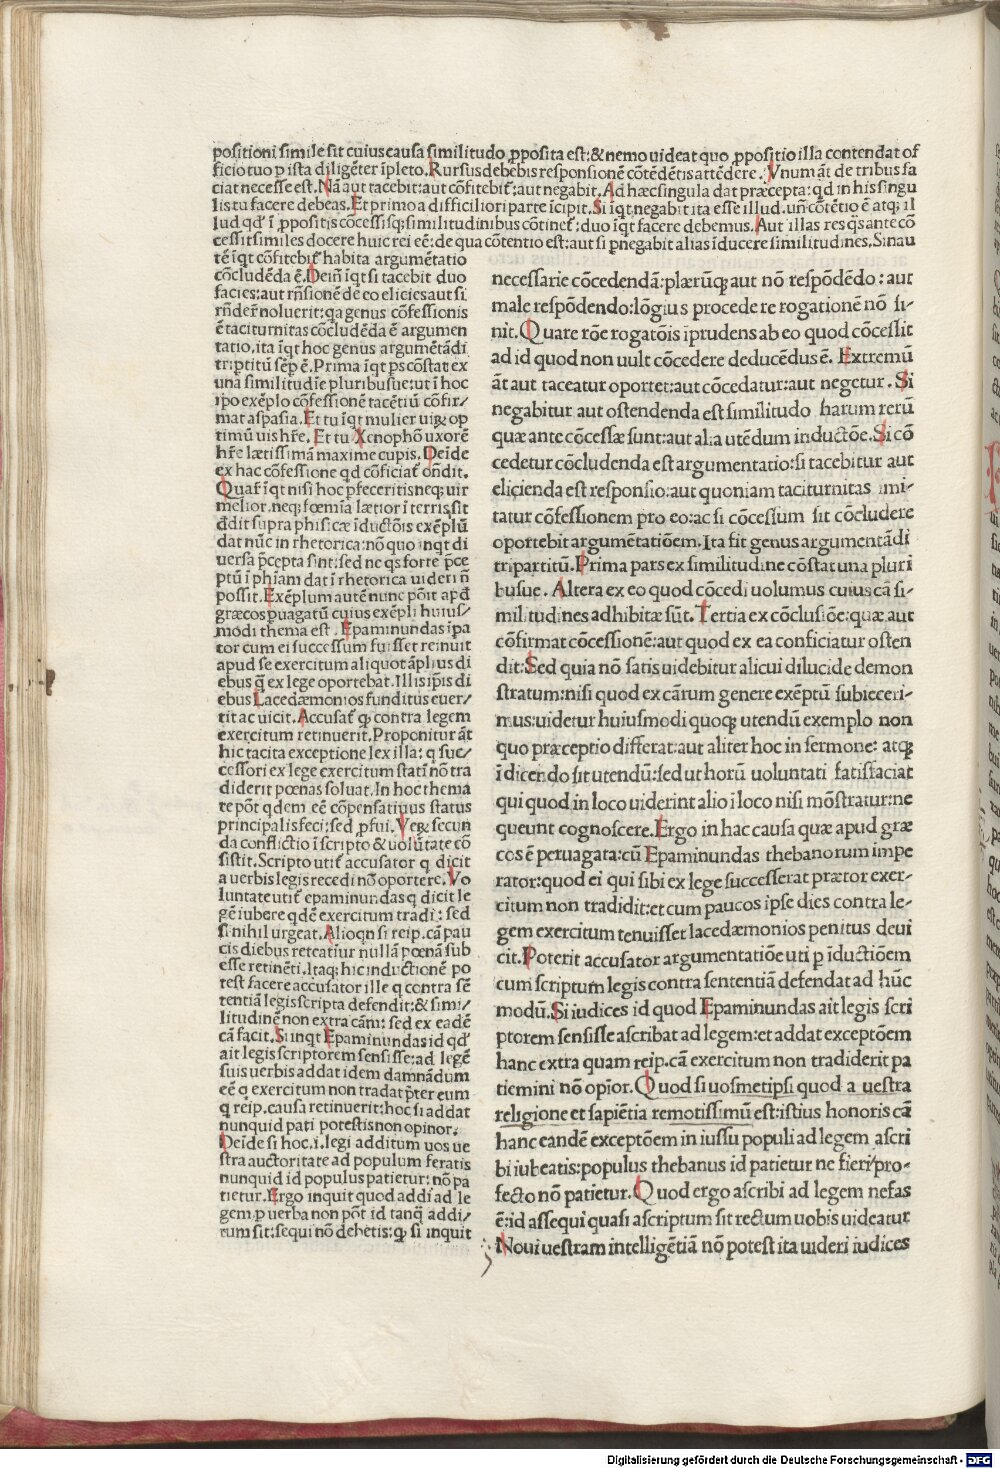 positioni simile sit cuius causa similitudo ꝓposita est: & nemo uideat quo ꝓpositio illa contendat of
ficio tuo p ista diligēter īpleto. Rursus debebis responsionē cōtēdētis attēdere. Vnum āt de tribus fa
ciat necesse est. Nā aut tacebit: aut cōfitebit̄: aut negabit. Ad hæc singula dat præcepta: qd in his singu
lis tu facere debeas. Et primo a difficiliori parte īcipit. Si īqt negabit ita esse illud. un̄ cōtētio ē atq; il
lud qd' ī ꝓpositis cōcessisq; similitudinibus cōtinet̄: duo īqt facere debemus. Aut illas res qs ante cō
cessit similes docere huic rei eē: de qua cōtentio est: aut si p̄negabit alias īducere similitudines. Sinau
tē īqt cōfitebit̄ habita argumētatio
cōcludēda ē. Dein̄ īqt si tacebit duo
facies: aut rn̄sionē de eo elicies aut si
rn̄dēr noluerit: qa genus cōfessionis
ē taciturnitas cōcludēda ē argumen
tatio, ita īqt hoc genus argumētādi
triptitū sēp ē. Prima īqt ps cōstat ex
una similitudīe pluribusue: ut ī hoc
ipo exēplo cōfessionē tacētiū cōfir/
mat aspasia. Et tu īqt mulier uiꝝ op
timū uis hr̄e. Et tu Xenophō uxorē
hr̄e lætissimā maxime cupis. Deīde
ex hac cōfessione qd cōficiat̄ on̄dit.
Quaf īqt nisi hoc pfeceritis neq; uir
melior. neq; fœmīa lætior ī terris sit
d̄dit supra phisicæ īductōis exēplū
dat nūc in rhetorica: nō quo inqt di
uersa p̄cepta sint: sed ne qs forte p̄ce
ptū ī phīam dat ī rhetorica uideri n̄
possit. Exēplum autē nunc pōit apd̄
græcos puagatū cuius exēpli huius/
modi thema est. Epaminundas īpa
tor cum ei successum fuisset renuit
apud se exercitum aliquot āplius di
ebus q̄ ex lege oportebat. Illis ip̄is di
ebus Lacedæmonios funditus euer/
tit ac uicit. Accusat̄ ꝙ contra legem
exercitum retinuerit. Proponitur āt
hic tacita exceptione lex illa: q suc/
cessori ex lege exercitum statī nō tra
diderit pœnas soluat. In hoc thema
te pōt qdem eē cōpensatiuus status
principalis feci: sed ꝓfui. Veꝝ secun
da conflictio ī scripto & uolūtate cō
sistit. Scripto utit̄ accusator q dicit
a uerbis legis recedi nō oportere. Vo
luntate utit̄ epaminundas q dicit le
gē iubere qdē exercitum tradi: sed
si nihil urgeat. Alioqn si reip. cā pau
cis diebus reteatur nullā pœnā sub
esse retinēti. Itaq; hic inductionē po
test facere accusator ille q contra sē
tentiā legis scripta defendit: & simi/
litudinē non extra cām: sed ex eadē
cā facit. Si inqt Epaminundas id qd'
ait legis scriptorem sensisse: ad legē
suis uerbis addat idem damnādum
eē q exercitum non tradat p̄ter eum
q reip. causa retinuerit: hoc si addat
nunquid pati potestis non opinor.
Deīde si hoc. i. legi additum uos ue
stra auctoritate ad populum feratis
nunquid id populus patietur: nō pa
tietur. Ergo inquit quod addi ad le
gem p uerba non pōt id tanq̄ addi/
tum sit: sequi nō debetis: ꝙ si inquit
necessarie cōcedendā: plærūq; aut nō respōdēdo: aut
male respōdendo: lōgius procedere rogationē nō si-
nit. Quare rōe rogatōis iprudens ab eo quod cōcessit
ad id quod non uult cōcedere deducēdus ē. Extremū
āt aut taceatur oportet: aut cōcedatur: aut negetur. Si
negabitur aut ostendenda est similitudo harum rerū
quæ ante cōcessæ sunt: aut alia utēdum inductōe. Si cō
cedetur cōcludenda est argumentatio: si tacebitur aut
elicienda est responsio: aut quoniam taciturnitas imi-
tatur cōfessionem pro eo: ac si cōcessum sit cōcludere
oportebit argumētatiōem. Ita fit genus argumentādi
tripartitū. Prima pars ex similitudine cōstat una pluri
busue. Altera ex eo quod cōcedi uolumus cuius cā si-
militudines adhibitæ sūt. Tertia ex cōclusiōe: quæ aut
cōfirmat cōcessionē: aut quod ex ea conficiatur osten
dit: Sed quia nō satis uidebitur alicui dilucide demon
stratum: nisi quod ex cārum genere exēptū subieceri-
mus: uidetur huiusmodi quoq; utendū exemplo non
quo præceptio differat: aut aliter hoc in sermone: atq;
ī dicendo sit utendū: sed ut horū uoluntati satisfaciat
qui quod in loco uiderint alio ī loco nisi mōstratur: ne
queunt cognoscere. Ergo in hac causa quæ apud græ
cos ē peruagata: cū Epaminundas thebanorum impe
rator: quod ei qui sibi ex lege successerat prætor exer-
citum non tradidit: et cum paucos ipse dies contra le-
gem exercitum tenuisset lacedæmonios penitus deui
cit. Poterit accusator argumentatiōe uti p īductiōem
cum scriptum legis contra sententiā defendat ad hūc
modū. Si iudices id quod Epaminundas ait legis scri
ptorem sensisse ascribat ad legem: et addat exceptōem
hanc extra quam reip. cā exercitum non tradiderit pa
tiemini nō opior. Quod si uosmetipsi quod a uestra
religione et sapiētia remotissimū est: istius honoris cā
hanc eandē exceptōem in iussu populi ad legem ascri
bi iubeatis: populus thebanus id patietur ne fieri/pro-
fecto nō patietur. Quod ergo ascribi ad legem nefas
ē: id assequi quasi ascriptum sit rectum uobis uideatur
Noui uestram intelligētiā nō potest ita uideri iudices
Digitalisierung gefördert durch die Deutsche Forschungsgemeinschaft - DFG